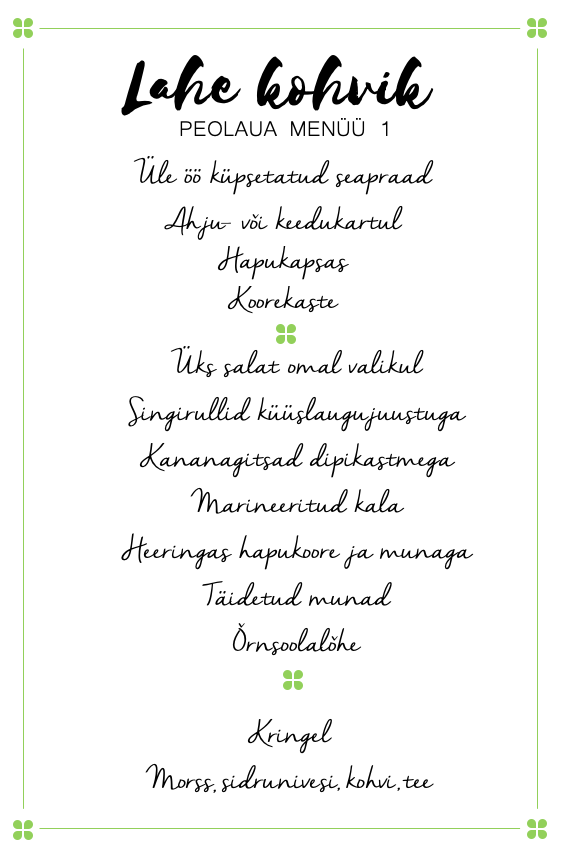 Lahe kohvik
PEOLAUA MENÜÜ 1
Üle öö küpsetatud seapraad
Ahju- või keedukartul
Hapukapsas
Koorekaste
Üks salat omal valikul
Singirullid küüslaugujuustuga
Kananagitsad dipikastmega
Marineeritud kala
Heeringas hapukoore ja munaga
Täidetud munad
Õrnsoolalõhe
Kringel
Morss, sidrunivesi, kohvi, tee